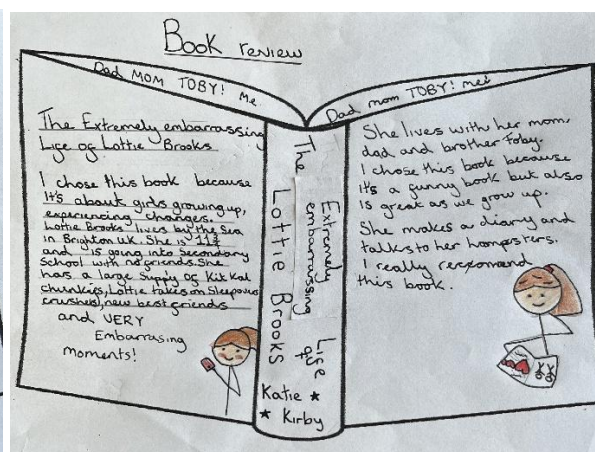 Book review
Dad MOM TOBY! Me
The Extremely embarrassing
Life of Lottie Brooks
I chose this book because
It's about girls growing up,
experiencing changes.
Lottie Brooks lives by the Sea
in Brighton UK. She is 11¾
and is going into Secondary
School with no friends. She
has a large Supply of Kit Kat
chunkies, Lottie takes on Sleepovers
crushes, new best friends
and VERY
Embarrasing
moments!
The Extremely embarrassing Life of
Lottie Brooks
Katie
Kirby
Dad mom TOBY! me!
She lives with her mom,
dad and brother Toby.
I chose this book because
it's a funny book but also
is great as we grow up.
She makes a diary and
talks to her hampsters.
I really reccomend
this book.